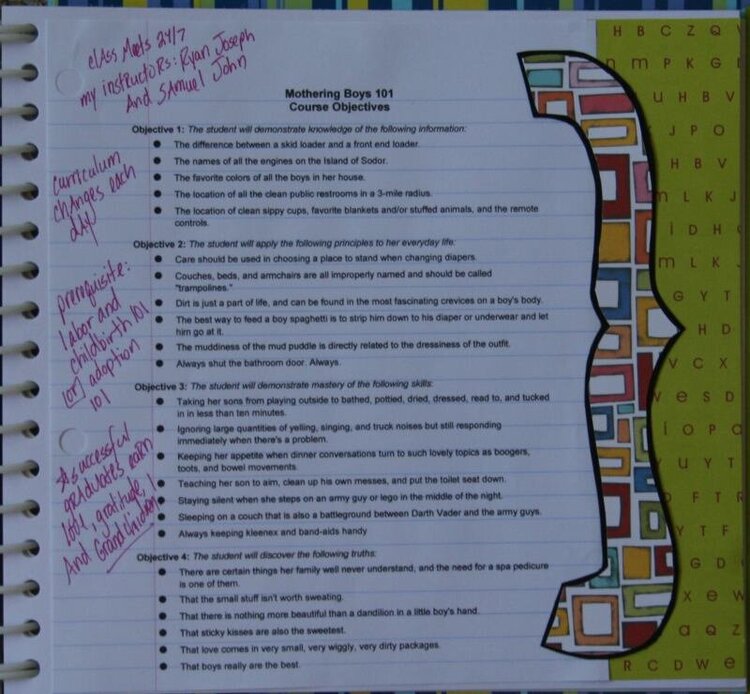 clAss Meets 24/7
my instructors: Ryan Joseph
And SAmuel John
Mothering Boys 101
Course Objectives
Objective 1: The student will demonstrate knowledge of the following information:
● The difference between a skid loader and a front end loader.
● The names of all the engines on the Island of Sodor.
● The favorite colors of all the boys in her house.
● The location of all the clean public restrooms in a 3-mile radius.
● The location of clean sippy cups, favorite blankets and/or stuffed animals, and the remote
controls.
curriculum
chAnges each
dAy
Objective 2: The student will apply the following principles to her everyday life:
● Care should be used in choosing a place to stand when changing diapers.
● Couches, beds, and armchairs are all improperly named and should be called
"trampolines."
● Dirt is just a part of life, and can be found in the most fascinating crevices on a boy's body.
● The best way to feed a boy spaghetti is to strip him down to his diaper or underwear and let
him go at it.
● The muddiness of the mud puddle is directly related to the dressiness of the outfit.
● Always shut the bathroom door. Always.
prerequisite:
labor and
childbirth 101
(or) adoption
101
Objective 3: The student will demonstrate mastery of the following skills:
● Taking her sons from playing outside to bathed, pottied, dried, dressed, read to, and tucked
in in less than ten minutes.
● Ignoring large quantities of yelling, singing, and truck noises but still responding
immediately when there's a problem.
● Keeping her appetite when dinner conversations turn to such lovely topics as boogers,
toots, and bowel movements.
● Teaching her son to aim, clean up his own messes, and put the toilet seat down.
● Staying silent when she steps on an army guy or lego in the middle of the night.
● Sleeping on a couch that is also a battleground between Darth Vader and the army guys.
● Always keeping kleenex and band-aids handy
successful
grAduates earn
love, gratitude,
And Grandchildren!
Objective 4: The student will discover the following truths:
● There are certain things her family well never understand, and the need for a spa pedicure
is one of them.
● That the small stuff isn't worth sweating.
● That there is nothing more beautiful than a dandilion in a little boy's hand.
● That sticky kisses are also the sweetest.
● That love comes in very small, very wiggly, very dirty packages.
● That boys really are the best.
H B C Z Q
m P K G L
U H B V
J P O
H B V
m L K J
i D H
m L K
G Y T
H D
V C X
w e s D
i O P
U Y T
D F T R
Y T F
G D
x e w
a Q Z
R C D w e